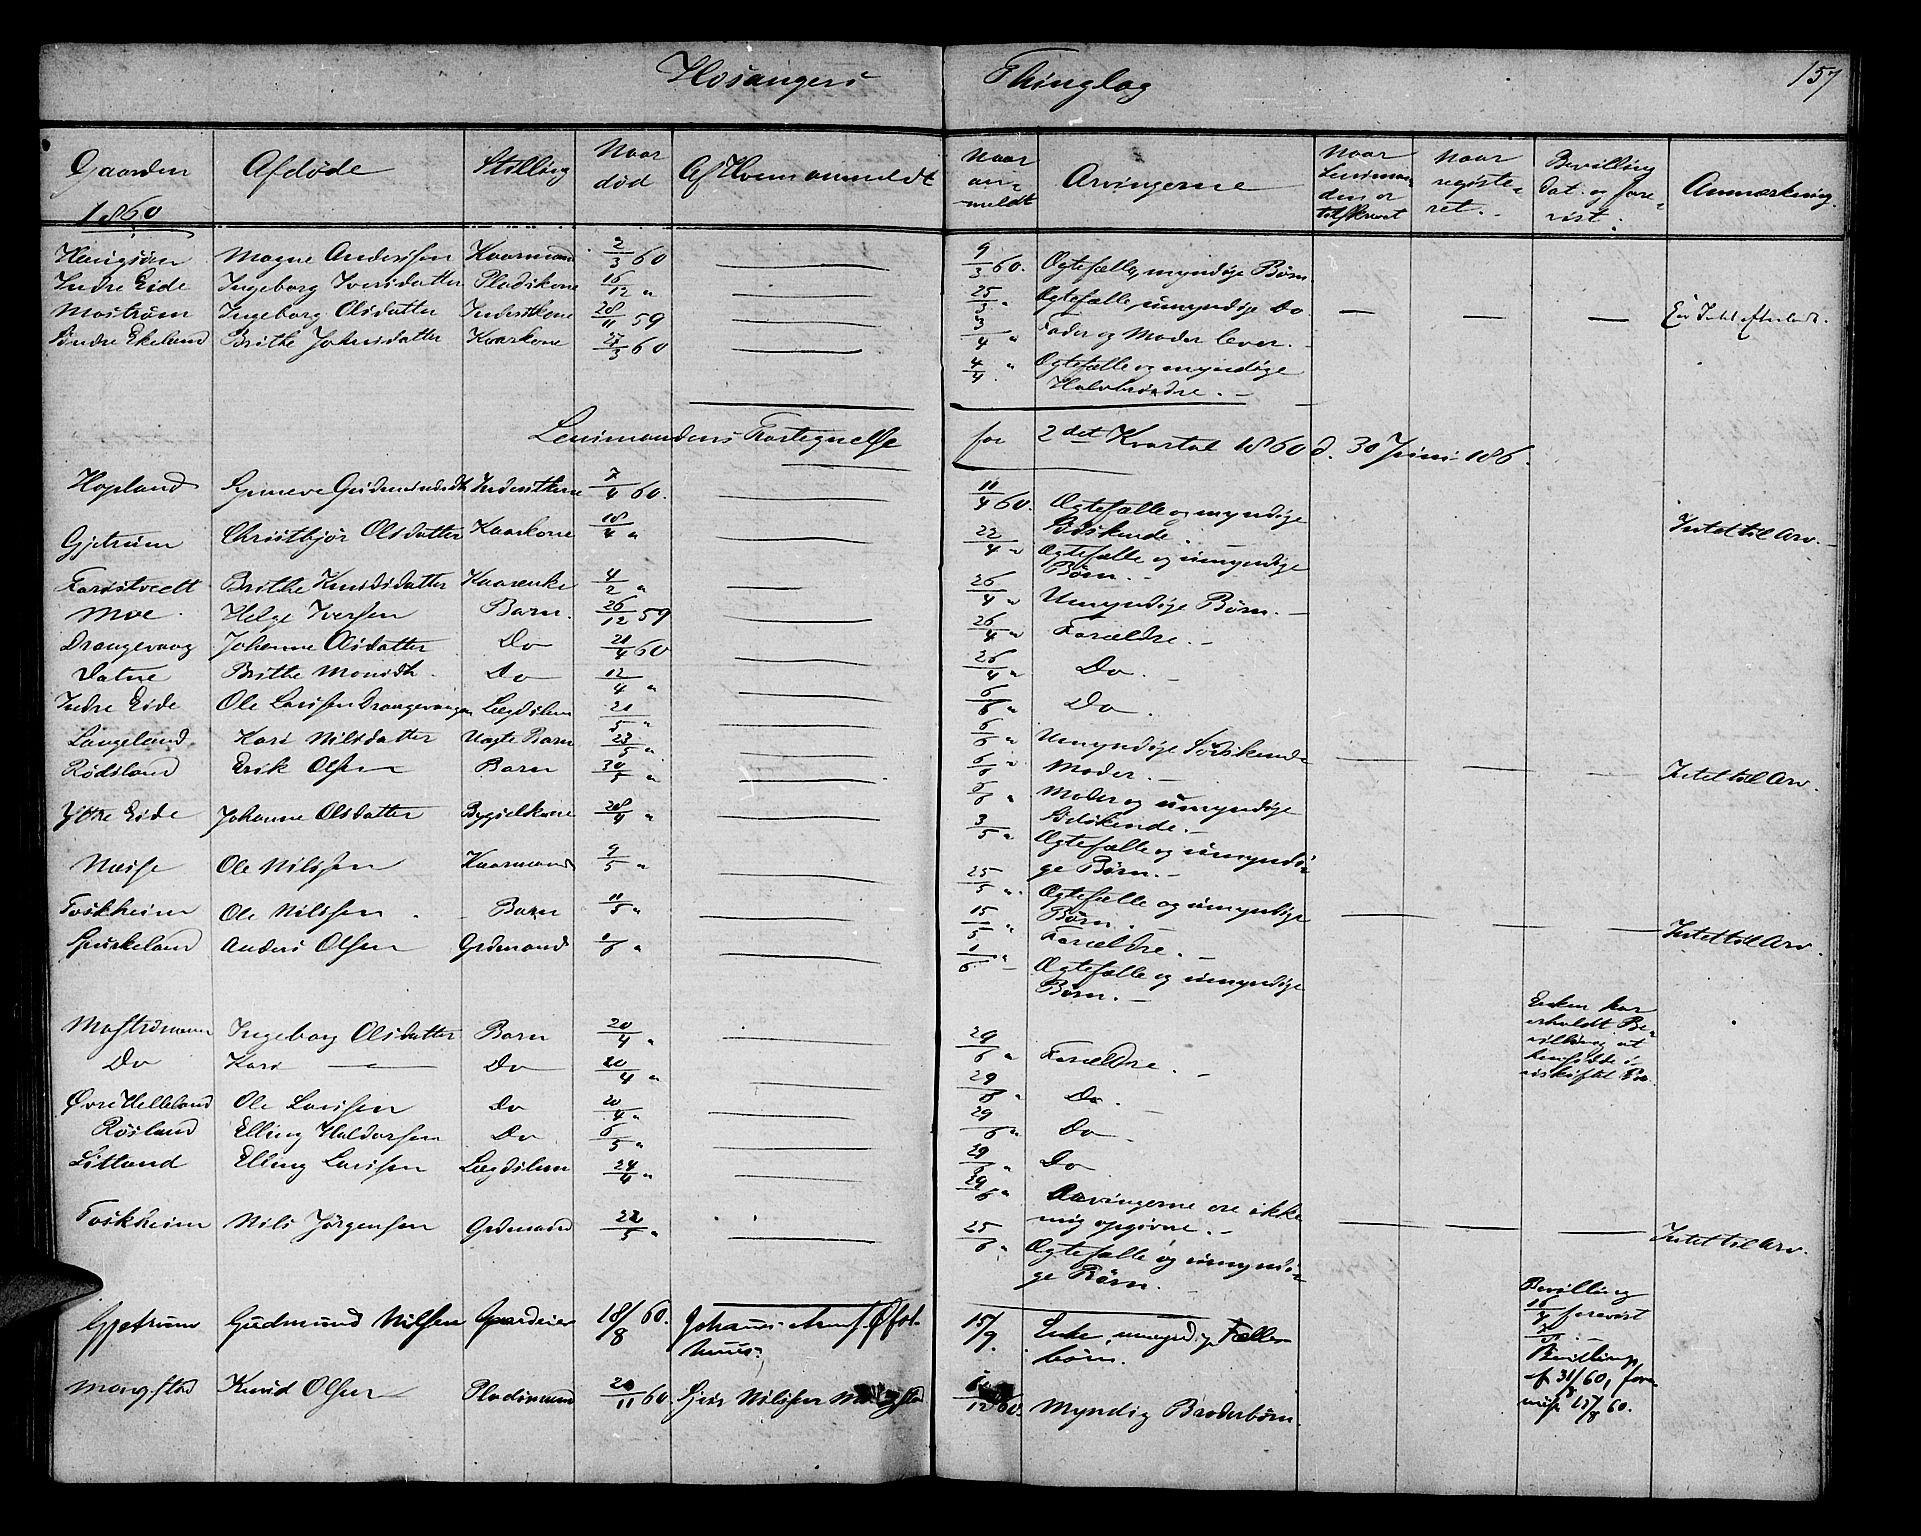 Hosangers Thinglag
157
Gaarden Afdøde Stilling Naar død Af Hvem anmeldt Naar anmeldt Arvingerne Naar Lensmanden er tilskrevet Naar registeret. Bevilling dat. og forevist. Anmærkning.
1860
Magne Andersen Kaarmand 2/3 60 9/3 60. Ægtefælle, myndige Børn.
Indre Eide Ingeborg Iversdatter Pladskone 16/12 " 25/3 " Ægtefælle, umyndige Do
Mostrøm Ingeborg Olsdatter 28/11 59 3/4 " Fader og Moder lever. — — — —
Indre Ekeland Brithe Johnsdatter Kaarkone 27/3 60 4/4 " Ægtefælle og myndige
Halvbrødre. —
Lensmandens Fortegnelse for 2det Kvartal 1860 d. 30 Juni 186.
Hopland 7/4 60. 11/4 60. Ægtefælle og myndige
Sødskende. — Intet til Arv. —
Gjetrum Christbjør Olsdatter Kaarkone 18/4 " 22/4 " Ægtefælle og umyndige
Børn. —
Brithe Knudsdatter Kaarenke 4/2 " 26/4 " Umyndige Børn. —
Moe. Helge Iversen Barn. 26/12 59 26/4 " Forældre. —
Drangevaag Johanne Olsdatter Do 21/4 60 26/4 " Do.
Brithe Monsdt. Do 12/4 " 6/6 " Do.
Indre Eide Ole Larssen Drangevaagen Lægdslem 21/5 " 6/6 " Umyndige Sødskende
Langeland Kari Nilsdatter Uægte Barn 23/5 " 6/6 " Moder. — — — — Intet til Arv.
Rødsland Erik Olsen Barn 30/5 " 6/6 " Moder og umyndige
Sødskende. —
Ytre Eide Johanne Olsdatter Bygselkone 28/4 " 3/5 " Ægtefælle og umyndi-
ge Børn. —
Ole Nilssen Kaarmand 9/5 " 25/5 " Ægtefælle og umyndige
Børn. —
Toskheim Ole Nilssen Barn 11/5 " 15/5 " Forældre. — — — — Intet til Arv.
Anders Olsen Grdmand 1/6 " 1/6 " Ægtefælle og umyndige
Børn. —
Enken har
erholdt Be-
villing at
hensidde i
uskiftet Bo.
Mostrømmen Ingeborg Olsdatter Barn 20/4 " 29/6 " Forældre. —
Do Kari — Do 20/4 " 29/6 " Do.
Øvre Helleland Ole Larssen Do 20/4 " 29/6 " Do
Røsland Elling Haldorsen Do 6/5 " 29/6 " Do
Litland Elling Larssen Lægdslem 24/4 " 29/6 " Arvingerne ere ikke
mig opgivne. — — — — Intet til Arv.
Toskheim Nils Jørgensen Grdmand 22/5 " 25/6 " Ægtefælle og umyndi-
ge Børn. —
Bevilling
forevist
Gjetrum Gudmund Nilsen Gaardeier 18/8 60. Johannes 15/9. Enke umyndige Fælles-
børn.
Mongstad Knud Olsen Pladsmand 20/11 60 Geir Nilssen Mongstad 6/12 60. Myndig Broderbørn
Bevilling
af 31/8 60, fore-
vist 15/8 60.